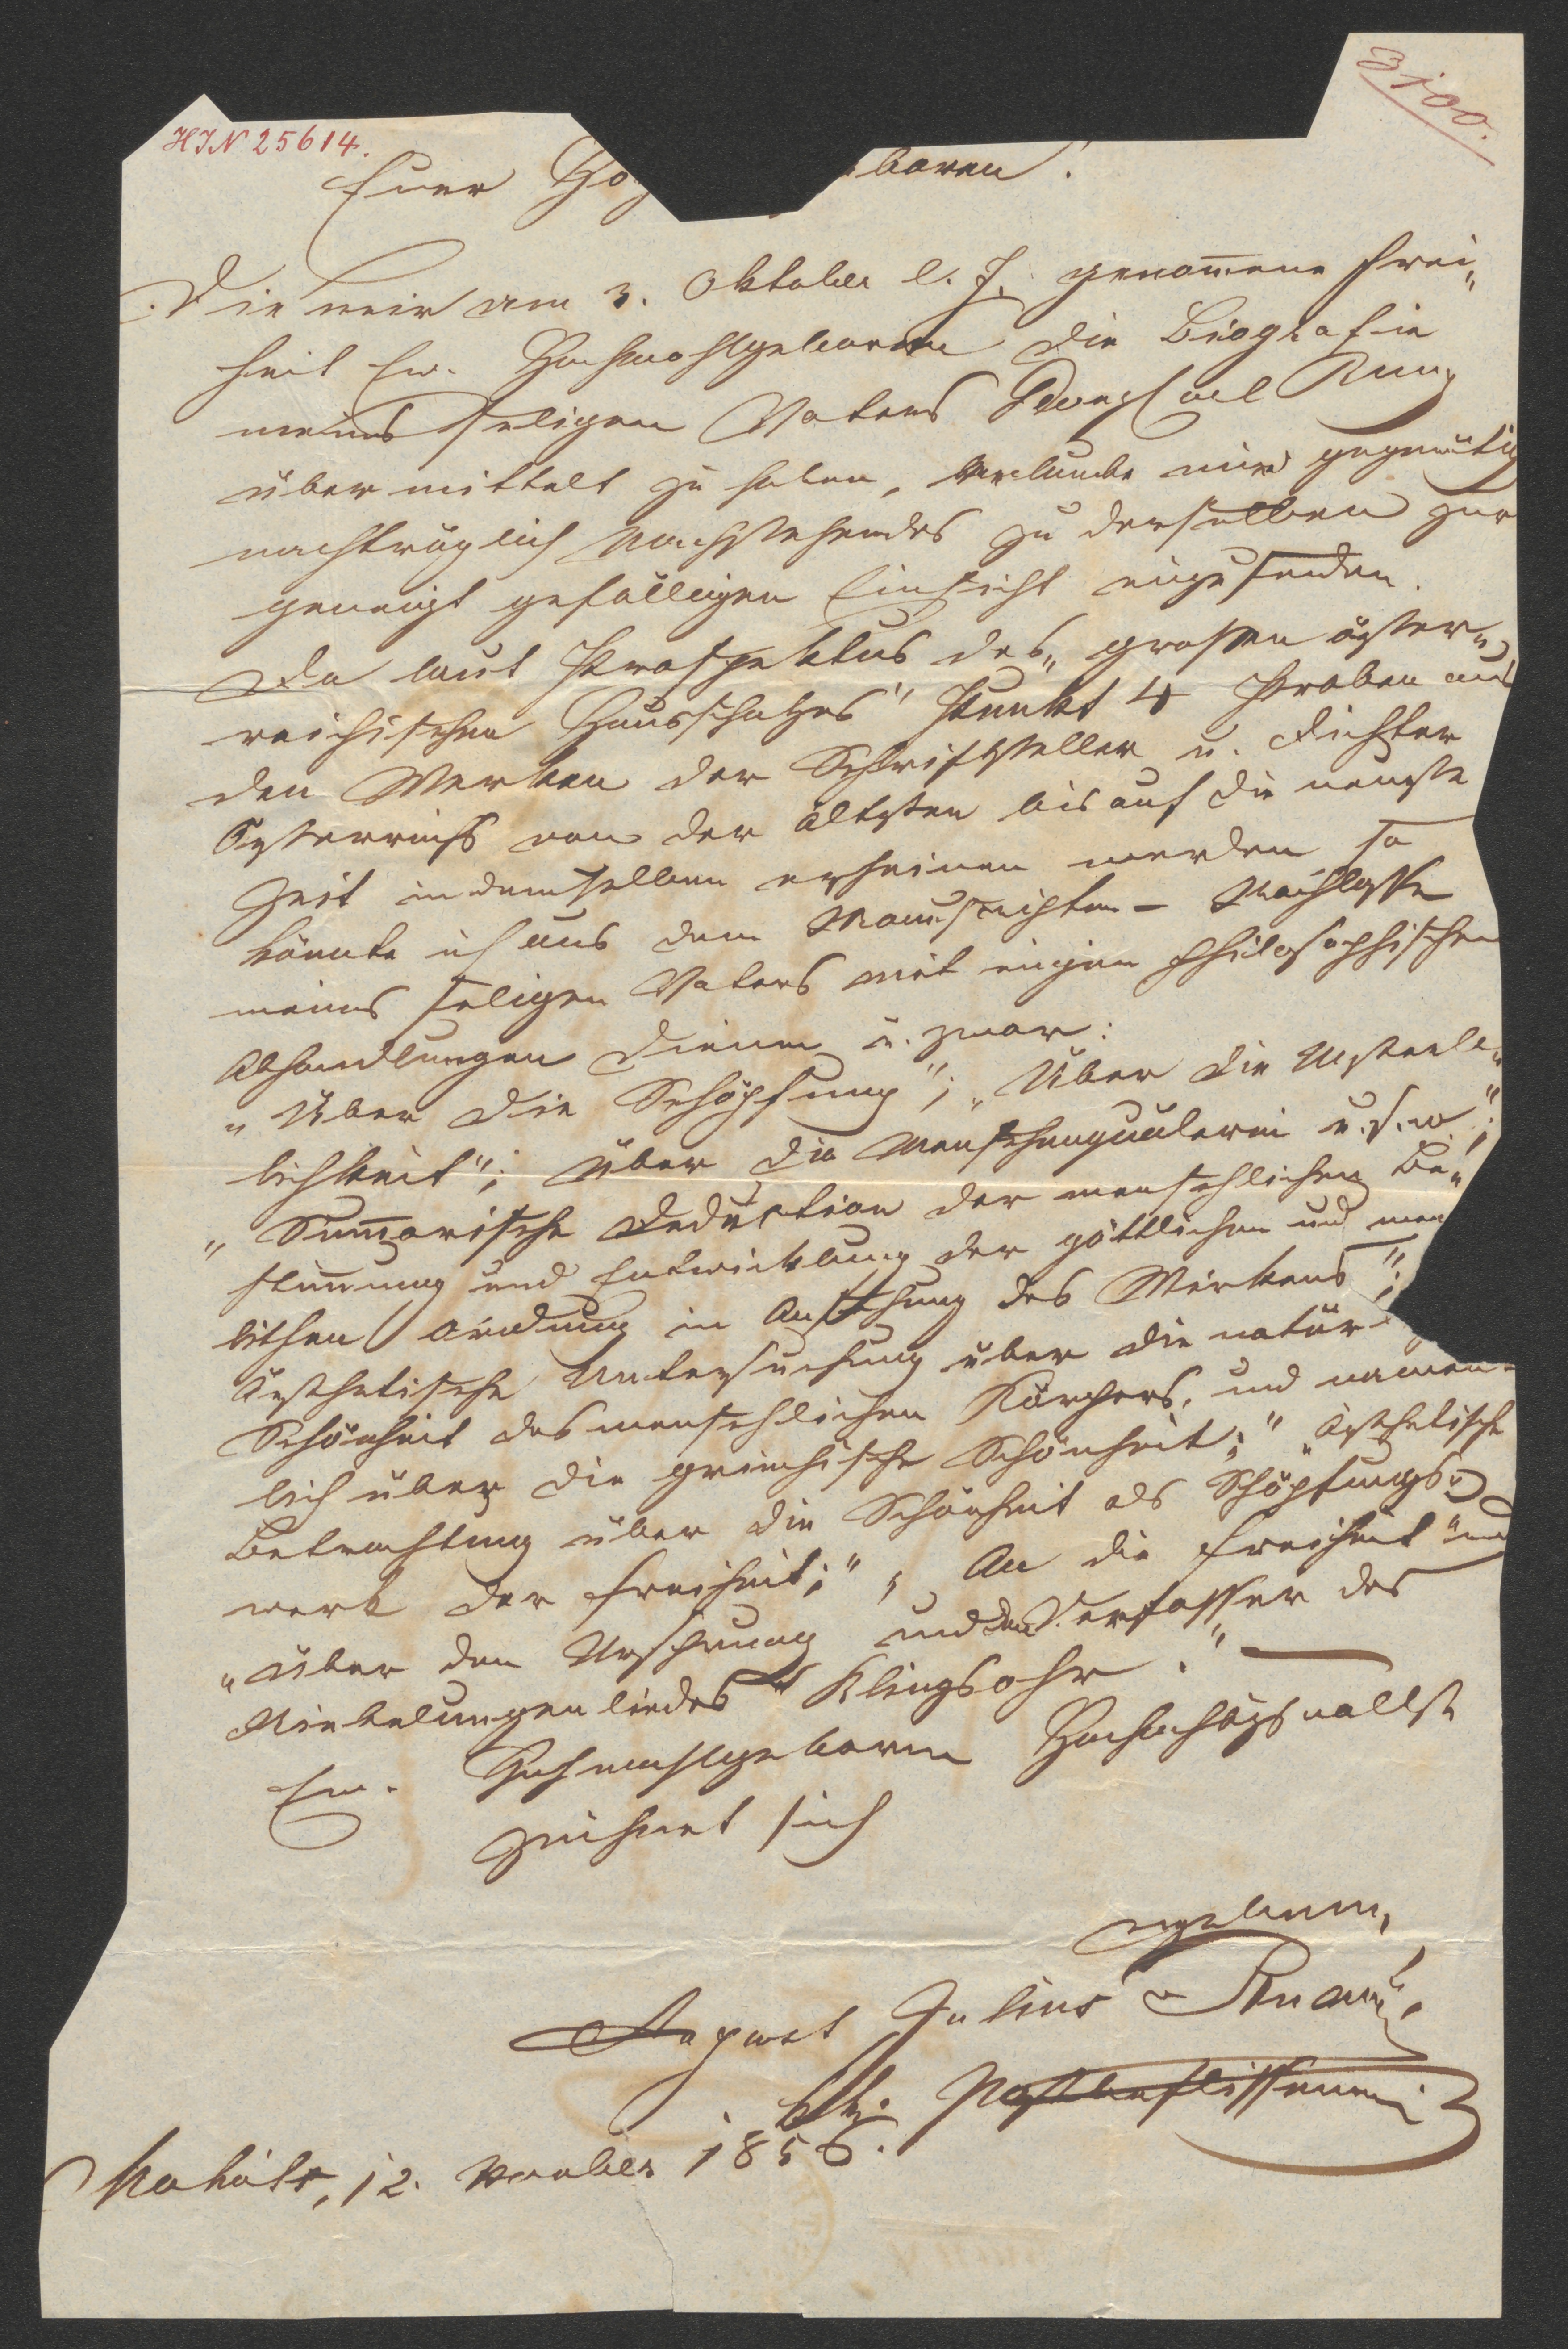 HIN 25614.
3100.
Euer Hoch baren!
Die mir am 3. Oktober l. J. genom̅ene Frei„
heit Ew. Hochwohlgeboren die Biografie
meines seligen Vaters
übermittelt zu haben, erlaube mir
nachträglich Nachstehendes zu derselben zur
geneigt gefälligen Einsicht einzusenden.
Da laut Prospektus des „grossen öster„
reichischen Hausschatzes" Punkt 4 Proben aus
den Werken der Schriftsteller u. Dichter
Österreichs von der ältesten bis auf die neueste
Zeit in demselben erscheinen werden so
könnte ich aus dem Manuscripten - Nachlasse
meines seligen Vaters mit einigen philosophischen
Abhandlungen dienen u. zwar:
„Über die Schöpfung"; „Über die Unsterb„
lichkeit"; Über die Menschenquälerei u.s.w";
„Sum̅arische Deduction der menschlichen Be„
stim̅ung und Entwicklung der göttlichen und men
lichen Ordnung in Ansehung des Wirkens";
Ästhetische Untersuchung über die natür
Schönheit des menschlichen Körpers, und namen„
lich über die griechische Schönheit;" „Ästhetische
Betrachtung über die Schönheit als Schöpfungs„
werk der Freiheit;" „An die Freiheit" und
„Über den Ursprung und den Verfasser des
Niebelungenliedes Klingsohr."
Ew. Hochwohlgeboren Hochachtungsvollst
zeichnet sich
ergebener,
August Julius
kk. Postbeflissener
12. November 1856.